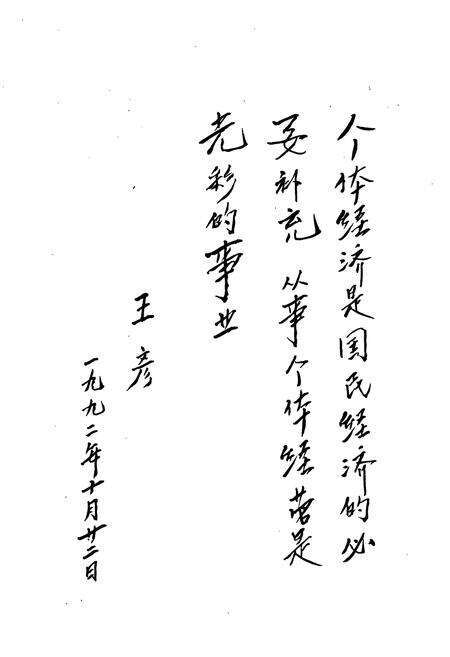 个体经济是国民经济的必
要补充 从事个体经营是
光彩的事业
王彦
一九九二年十月廿二日